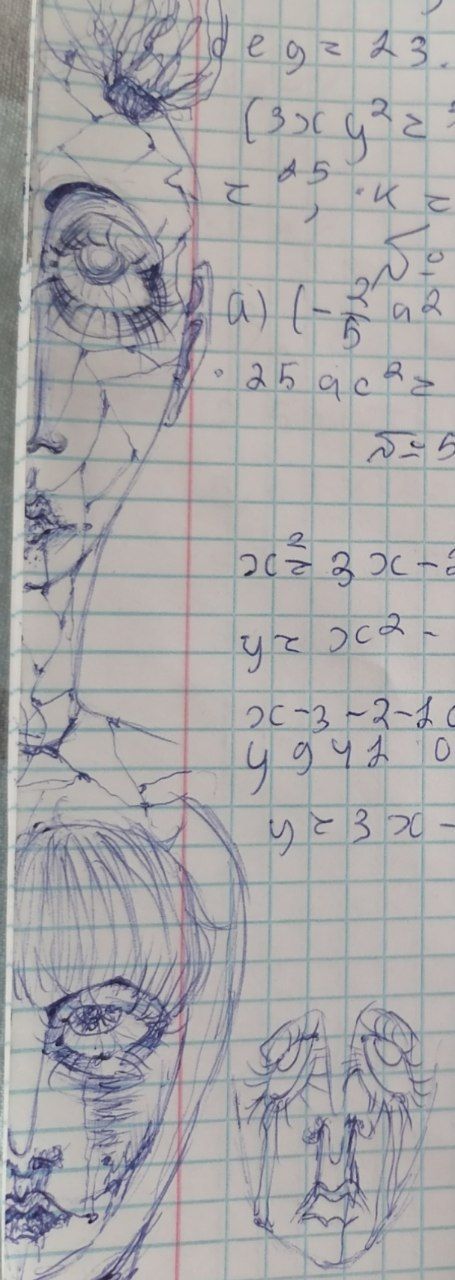 deg = 23.
(3xy² =
= 25, ·x =
а) (-2/5 a²
· 25 ac² =
= 5
x² = 3x - 2
y = x² -
x -3 -2 -1 0
y 9 4 1 0
y = 3x -